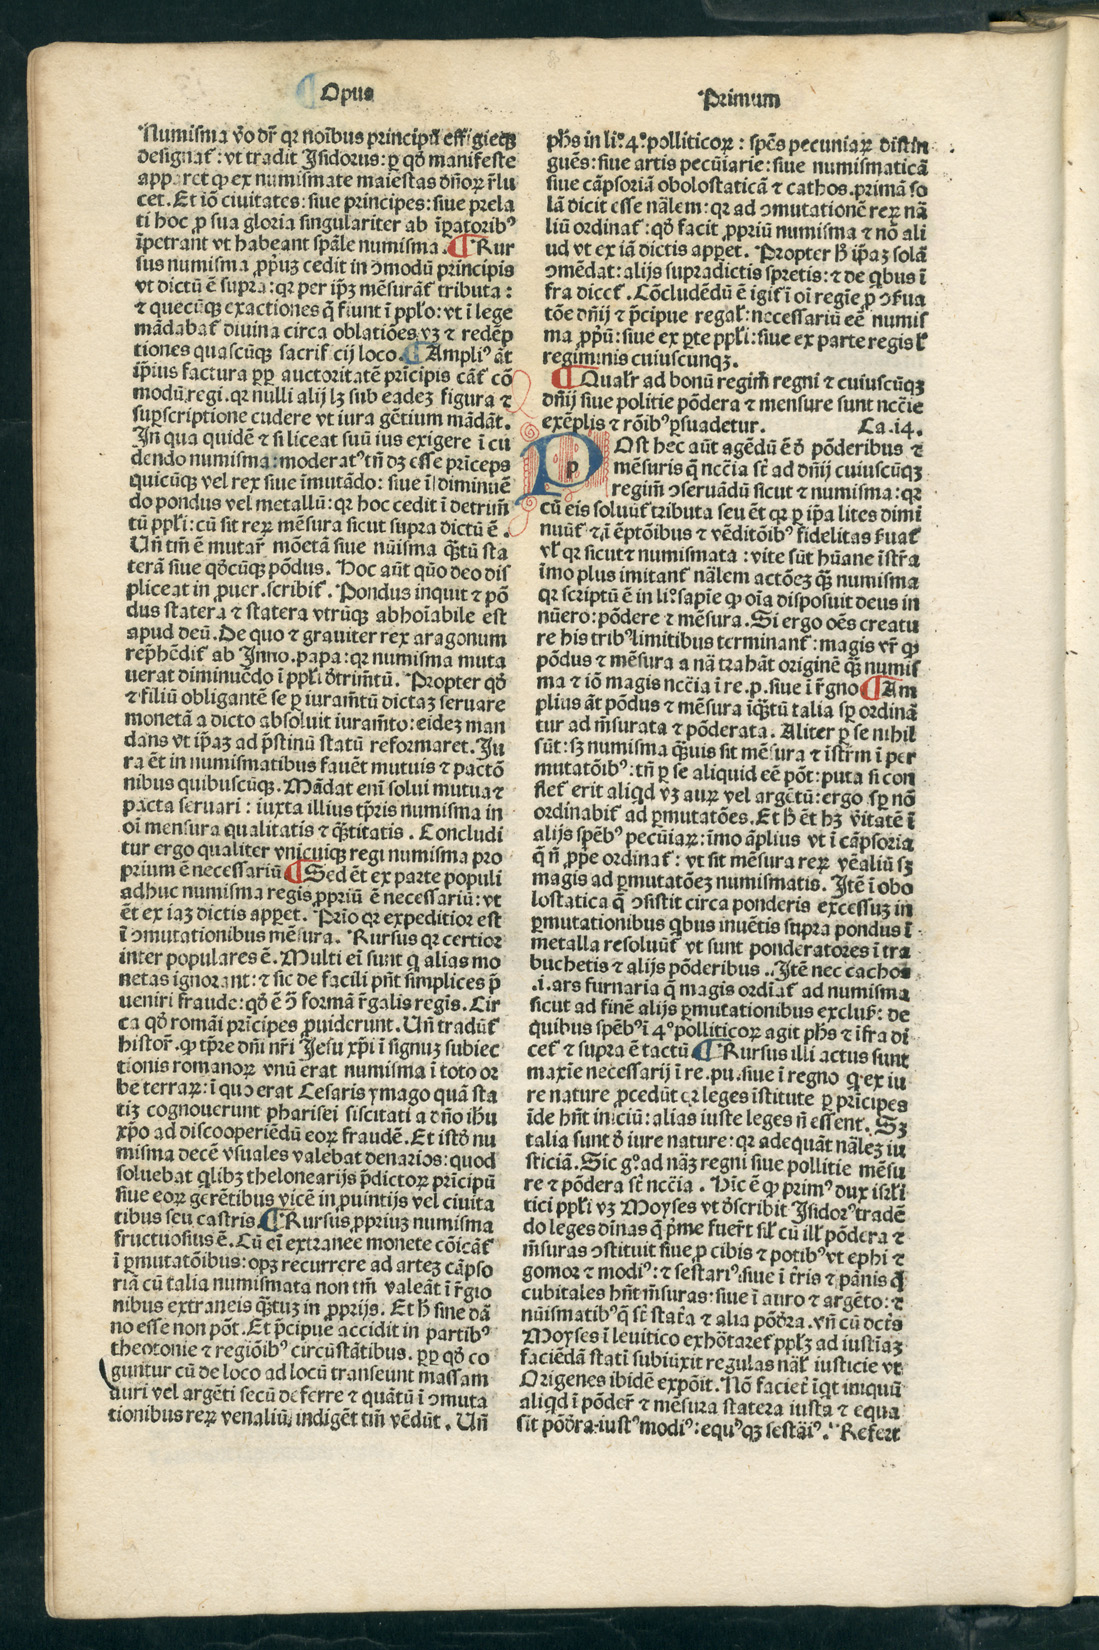 ¶ Opus
Primum
Numisma v̄o dr̄ qr noībus principū effigieqȝ
designat̄ : vt tradit Isidorus : ꝑ qd̄ manifeste
apparet ꝙ ex numismate maiestas dn̄oꝝ r̄lu
cet. Et iō ciuitates : siue principes : siue prela
ti hoc ꝓ sua gloria singulariter ab īꝑatoribꝰ
īpetrant vt habeant spāle numisma. ¶ Rur
sus numisma ꝓpriuȝ cedit in ↄmodū principis
vt dictū ē supra : qr per ip̄ȝ mēsurāt̄ tributa :
⁊ quecūqȝ exactiones q̄ fiunt ī ppl̄o : vt ī lege
mādabat̄ diuina circa oblatiōes vȝ ⁊ redēp
tiones quascūqȝ sacrificij loco. ¶ Ampliꝰ āt
ip̄ius factura ꝓpꝑ auctoritatē prīcipis cāt̄ cō
modū regi. qr nulli alij lȝ sub eadeȝ figura ⁊
supscriptione cudere vt iura gētium mādāt.
In̄ qua quidē ⁊ si liceat suū ius exigere ī cu
dendo numisma : moderatꝰ tn̄ dȝ esse prīceps
quicūqȝ vel rex siue īmutādo : siue ī diminuē
do pondus vel metallū : qr hoc cedit ī detrim̄
tū ppl̄i : cū sit reꝝ mēsura sicut supra dictū ē .
Un̄ tm̄ ē mutar̄ mōetā siue nūisma q̄ȝtū sta
terā siue qd̄cūqȝ pōdus. Hoc aūt quō deo dis
pliceat in ꝓuer. scribit̄. Pondus inquit ⁊ pō
dus statera ⁊ statera vtrūqȝ abhoīabile est
apud deū. De quo ⁊ grauiter rex aragonum
rep̄hēdit̄ ab Inno. papa : qr numisma muta
uerat diminuēdo ī ppl̄i d̄trim̄tū. Propter qd̄
⁊ filiū obligantē se ꝑ iuram̄tū dictaȝ seruare
monetā a dicto absoluit iuram̄to : eideȝ man
dans vt ip̄aȝ ad p̄stinū statū reformaret. Ju
ra ēt in numismatibus fauēt mutuis ⁊ pactō
nibus quibuscūqȝ. Mādat eni solui mutua ⁊
pacta seruari : iuxta illius tp̄ris numisma in
oī mensura qualitatis ⁊ q̄ȝtitatis. Concludi
tur ergo qualiter vnicuiqȝ regi numisma pro
prium ē necessariū ¶ Sed ēt ex parte populi
adhuc numisma regis ꝓpriū ē necessariū : vt
ēt ex iaȝ dictis apꝑet. Prīo qr expeditior est
ī ↄmutationibus mēsura. Rursus qr certior
inter populares ē. Multi ei sunt q alias mo
netas ignorant : ⁊ sic de facili pn̄t simplices p̄
ueniri fraude : qd̄ ē ↄ̄ formā r̄galis regis. Cir
ca qd̄ romāi prīcipes ꝓuiderunt. Un̄ tradūt̄
histor̄. ꝙ tp̄re dn̄i nr̄i Jesu xp̄i ī signuȝ subiec
tionis romanoꝝ vnū erat numisma ī toto or
be terraꝝ : ī quo erat Cesaris ymago quā sta
tiȝ cognouerunt pharisei siscitati a dn̄o ih̄u
xp̄o ad discooperiēdū eoꝝ fraudē. Et istd̄ nu
misma decē vsuales valebat denarios : quod
soluebat qlibȝ thelonearijs p̄dictoꝝ prīcipū
siue eoꝝ gerētibus vicē in ꝓuintijs vel ciuita
tibus seu castris. ¶ Rursus ꝓpriuȝ numisma
fructuosius ē. Cū ei extranee monete cōicāt̄
ī ꝑmutatōibus : opȝ recurrere ad arteȝ cāpso
riā cū talia numismata non tm̄ valeāt ī r̄gio
nibus extraneis q̄ȝtuȝ in ꝓprijs. Et h̄ sine dā
no esse non pōt. Et p̄cipue accidit in partibꝰ
theotonie ⁊ regiōibꝰ circūstātibus. ꝓpꝑ qd̄ co
guntur cū de loco ad locū transeunt massam
auri vel argēti secū deferre ⁊ quātū ī ↄmuta
tionibus reꝝ venaliū indigēt tm̄ vēdūt. Un̄
ph̄s in li.º 4.º polliticoꝝ : spēs pecuniaꝝ distin
guēs : siue artis pecūiarie : siue numismaticā
siue cāpsoriā obolostaticā ⁊ cathos. primā so
lā dicit esse nālem : qr ad ↄmutationē reꝝ nā
liū ordinat̄ : qd̄ facit ꝓpriū numisma ⁊ nō ali
ud vt ex iā dictis apꝑet. Propter h̄ ip̄aȝ solā
ↄmēdat : alijs supradictis spretis : ⁊ de qbus ī
fra dicet̄. Cōcludēdū ē igit̄ ī oī regīe ꝓ ↄſua
tōe dn̄ij ⁊ p̄cipue regal̄ : necessariū eē numis
ma ꝓpriū : siue ex ꝑte ppl̄i : siue ex parte regis l̄
regiminis cuiuscunqȝ.
¶ Qualr̄ ad bonū regim̄ regni ⁊ cuiuscūqȝ
dn̄ij siue politie pōdera ⁊ mensure sunt nc̄cīe
exēplis ⁊ rōibꝰ ꝑsuadetur. Ca. 14.
Post hec aūt agēdū ē d̄ pōderibus ⁊
mēsuris q̄ nc̄cīa st̄ ad dn̄ij cuiuscūqȝ
regim̄ ↄseruādū sicut ⁊ numisma : qr
cū eis soluūt̄ tributa seu ēt qr ꝑ ip̄a lites dimi
nuūt̄ ⁊ ī ēptōibus ⁊ vēditōibꝰ fidelitas ſuat̄
vl̄ qr sicut ⁊ numismata : vite sūt hūane īstr̄a
īmo plus imitant̄ nālem actōeȝ q̄ȝ numisma
qr scriptū ē in li.º sapīe ꝙ oīa disposuit deus in
nūero : pōdere ⁊ mēsura. Si ergo oēs creatu
re his tribꝰ limitibus terminant̄ : magis vr̄ ꝙ
pōdus ⁊ mēsura a nā trahāt originē q̄ȝ numis
ma ⁊ iō magis nc̄cīa ī re. p. siue ī r̄gno ¶ Am
plius āt pōdus ⁊ mēsura īq̄ȝtū talia sꝑ ordinā
tur ad m̄surata ⁊ pōderata. Aliter ꝑ se nihil
sūt : sȝ numisma q̄ȝuis sit mēsura ⁊ īstrm̄ ī per
mutatōibꝰ : tn̄ ꝑ se aliquid eē pōt : puta si con
flet̄ erit aliqd vȝ auꝝ vel argētū : ergo sꝑ nō
ordinabit̄ ad ꝑmutatōes. Et h̄ ēt hȝ v̄itatē ī
alijs spēbꝰ pecūiaꝝ : īmo āplius vt ī cāpsoria
q̄ n̄ ꝓpe ordinat̄ : vt sit mēsura reꝝ vēaliū sȝ
magis ad ꝑmutatōeȝ numismatis. Itē ī obo
lostatica q̄ ↄsistit circa ponderis excessuȝ in
ꝑmutationibus qbus inuētis supra pondus ī
metalla resoluūt̄ vt sunt ponderatores ī tra
buchetis ⁊ alijs pōderibus . Itē nec cachos
.i. ars furnaria q̄ magis ordīat̄ ad numisma
sicut ad finē alijs ꝑmutationibus exclus̄ : de
quibus spēbꝰ ī 4º polliticoꝝ agit ph̄s ⁊ īfra di
cet̄ ⁊ supra ē tactū ¶ Rursus illi actus sunt
maxīe necessarij ī re. pu. siue ī regno q ex iu
re nature ꝓcedūt qr leges īstitute ꝑ prīcipes
īde hn̄t iniciū : alias iuste leges n̄ essent. Sȝ
talia sunt d̄ iure nature : qr adequāt nāleȝ iu
sticiā. Sic gº ad nāȝ regni siue pollitie mēsu
re ⁊ pōdera st̄ nc̄cīa. Hīc ē ꝙ primꝰ dux isrl̄i
tici ppl̄i vȝ Moyses vt d̄scribit Isidorꝰ tradē
do leges dīnas q̄ p̄me fuer̄t sil̄ cū ill̄ pōdera ⁊
m̄suras ↄstituit siue ꝓ cibis ⁊ potibꝰ vt ephi ⁊
gomor ⁊ modiꝰ : ⁊ sestariꝰ. siue ī t̄ris ⁊ pānis q̄
cubitales hn̄t m̄suras : siue ī auro ⁊ argēto : ⁊
nūismatibꝰ q̄ st̄ stat̄a ⁊ alia pōd̄ra. vn̄ cū dc̄ts
Moyses ī leuitico exhōtaret̄ pplȝ ad iustīaȝ
faciēdā stati subiūxit regulas nāl̄ iusticie vt
Origenes ibidē expōit. Nō faciet̄ īqt iniquū
aliqd ī pōder̄ ⁊ mēsura statera iusta ⁊ equa
sit pōd̄ra. iustꝰ modiꝰ : equꝰ qȝ sestāiꝰ. Refert